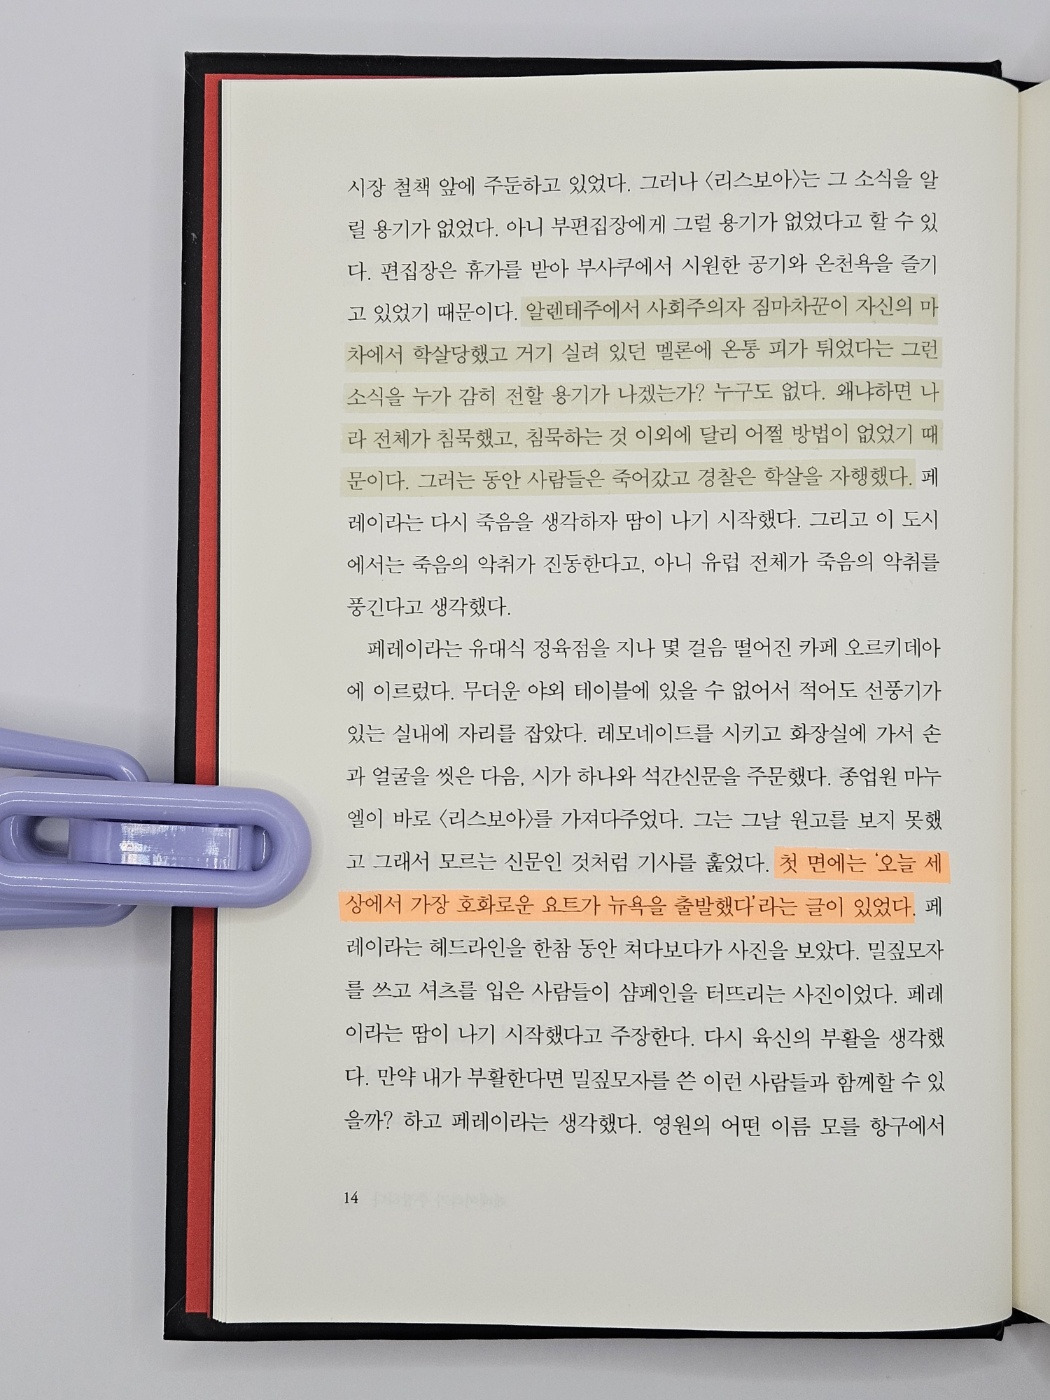 시장 철책 앞에 주둔하고 있었다. 그러나 〈리스보아〉는 그 소식을 알
릴 용기가 없었다. 아니 부편집장에게 그럴 용기가 없었다고 할 수 있
다. 편집장은 휴가를 받아 부사쿠에서 시원한 공기와 온천욕을 즐기
고 있었기 때문이다. 알렌테주에서 사회주의자 짐마차꾼이 자신의 마
차에서 학살당했고 거기 실려 있던 멜론에 온통 피가 튀었다는 그런
소식을 누가 감히 전할 용기가 나겠는가? 누구도 없다. 왜냐하면 나
라 전체가 침묵했고, 침묵하는 것 이외에 달리 어쩔 방법이 없었기 때
문이다. 그러는 동안 사람들은 죽어갔고 경찰은 학살을 자행했다. 페
레이라는 다시 죽음을 생각하자 땀이 나기 시작했다. 그리고 이 도시
에서는 죽음의 악취가 진동한다고, 아니 유럽 전체가 죽음의 악취를
풍긴다고 생각했다.
페레이라는 유대식 정육점을 지나 몇 걸음 떨어진 카페 오르키데아
에 이르렀다. 무더운 야외 테이블에 있을 수 없어서 적어도 선풍기가
있는 실내에 자리를 잡았다. 레모네이드를 시키고 화장실에 가서 손
과 얼굴을 씻은 다음, 시가 하나와 석간신문을 주문했다. 종업원 마누
엘이 바로 〈리스보아〉를 가져다주었다. 그는 그날 원고를 보지 못했
고 그래서 모르는 신문인 것처럼 기사를 훑었다. 첫 면에는 '오늘 세
상에서 가장 호화로운 요트가 뉴욕을 출발했다'라는 글이 있었다. 페
레이라는 헤드라인을 한참 동안 쳐다보다가 사진을 보았다. 밀짚모자
를 쓰고 셔츠를 입은 사람들이 샴페인을 터뜨리는 사진이었다. 페레
이라는 땀이 나기 시작했다고 주장한다. 다시 육신의 부활을 생각했
다. 만약 내가 부활한다면 밀짚모자를 쓴 이런 사람들과 함께할 수 있
을까? 하고 페레이라는 생각했다. 영원의 어떤 이름 모를 항구에서
14